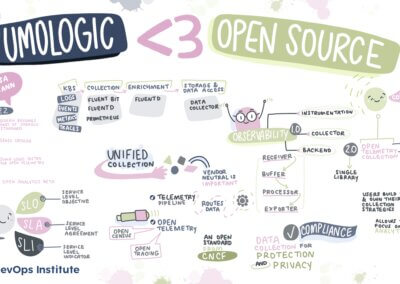 UMOLOGIC <3 OPEN SOURCE
K8S
LOGS
EVENTS
METRICS
TRACES
COLLECTION
FLUENT BIT
FLUENTD
PROMETHEUS
ENRICHMENT
FLUENTD
STORAGE &
DATA ACCESS
DATA
COLLECTOR
OBSERVABILITY
1.0
INSTRUMENTATION
COLLECTOR
BACKEND
2.0
SINGLE
LIBRARY
OPEN
TELEMETRY
COLLECTION
USERS BUILD
& OWN THEIR
COLLECTION
STRATEGIES
ALLOWS
FOCUS ON
UNIFIED
COLLECTION
VENDOR
NEUTRAL IS
IMPORTANT
RECEIVER
BUFFER
PROCESSOR
EXPORTER
SLO
SERVICE
LEVEL
OBJECTIVE
SLA
SERVICE
LEVEL
AGREEMENT
SLI
SERVICE
LEVEL
INDICATOR
TELEMETRY
PIPELINE
ROUTES
DATA
OPEN
TELEMETRY
OPEN
CENSUS
OPEN
TRACING
AN OPEN
STANDARD
FROM
CNCF
COMPLIANCE
DATA
COLLECTION FOR
PROTECTION
AND PRIVACY
evOps Institute